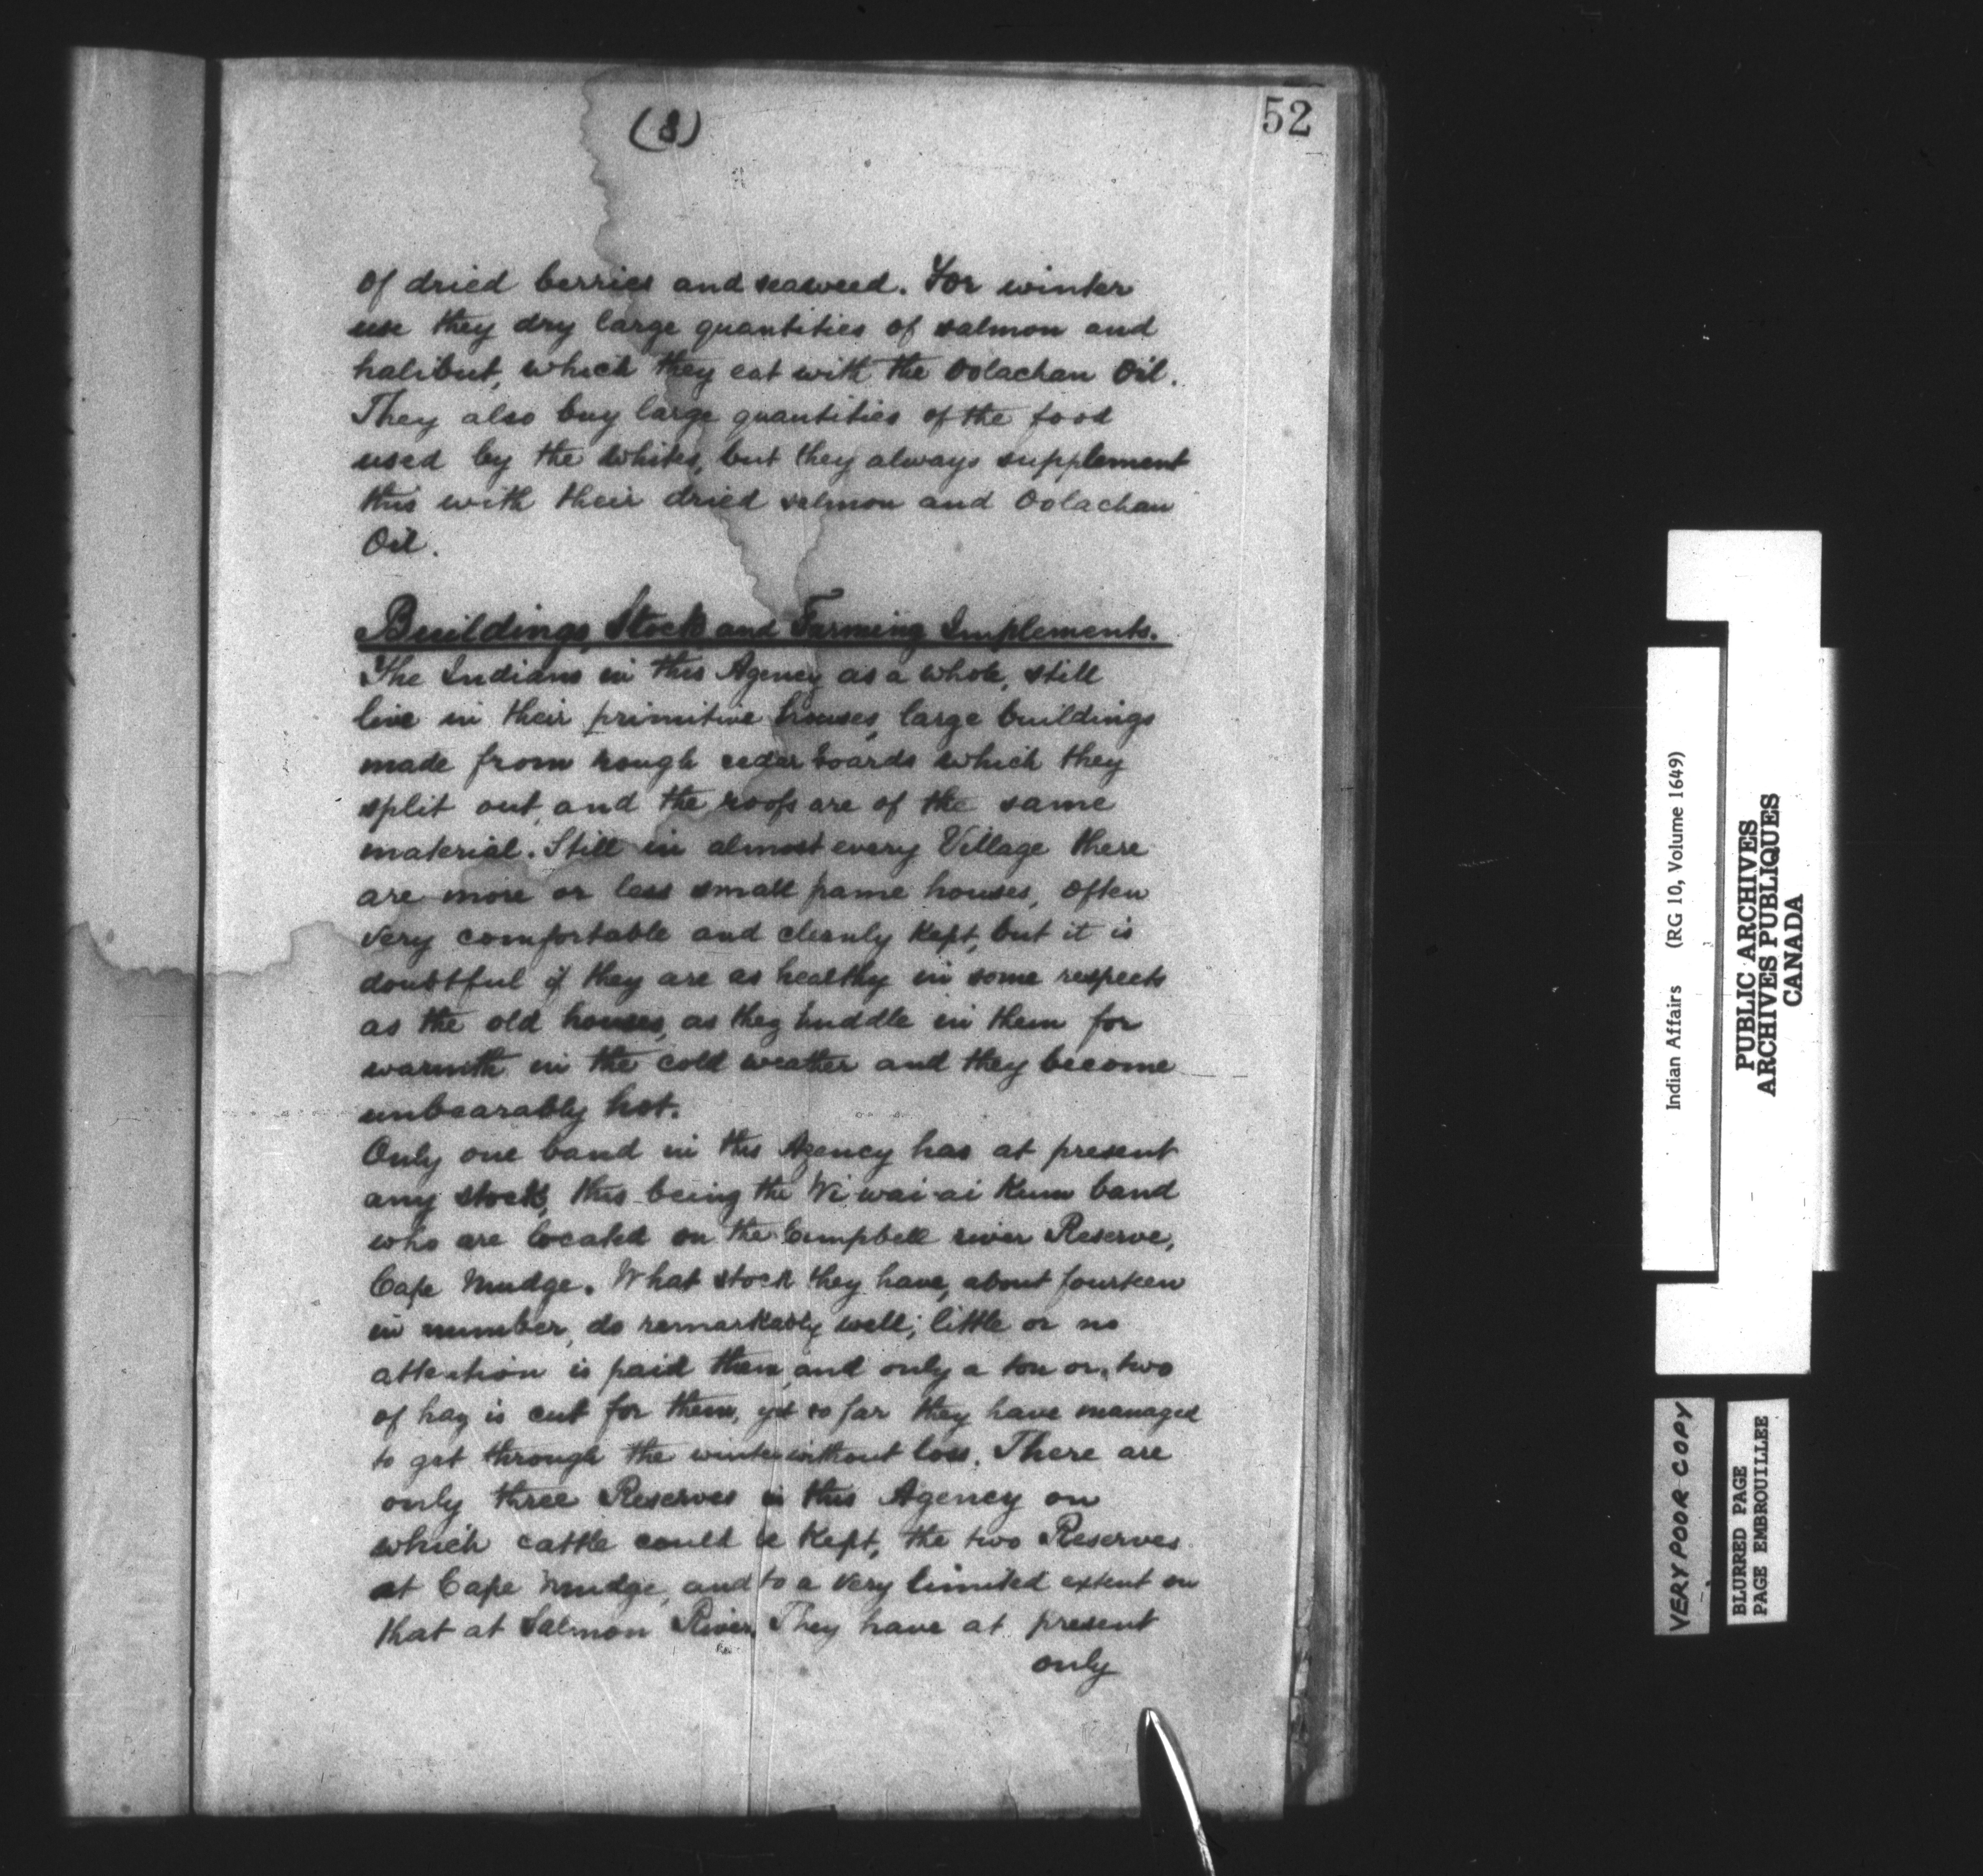 (8)
52
of dried berries and seaweed. For winter
use they dry large quantities of salmon and
halibut, which they eat with the Oolachan Oil.
They also buy large quantities of the food
used by the whites, but they always supplement
this with their dried salmon and Oolachan
Oil.
Buildings, Stock and Farming Implements.
The Indians in this Agency as a whole, still
live in their primitive houses, large buildings
made from rough cedar boards which they
split out, and the roofs are of the same
material. Still in almost every Village there
are more or less small frame houses, often
very comfortable and cleanly kept, but it is
doubtful if they are as healthy in some respects
as the old houses, as they huddle in them for
warmth in the cold weather and they become
unbearably hot.
Only one band in this Agency has at present
any stock, this being the Wi wai ai Kum band
who are located on the Campbell river Reserve,
Cape Mudge. What stock they have, about fourteen
in number, do remarkably well; little or no
attention is paid them, and only a ton or two
of hay is cut for them, yet so far they have managed
to get through the winter without loss. There are
only three Reserves in this Agency on
which cattle could be kept, the two Reserves
at Cape Mudge, and to a very limited extent on
that at Salmon River. They have at present
only
Indian Affairs (RG 10, Volume 1649)
PUBLIC ARCHIVES
ARCHIVES PUBLIQUES
CANADA
VERY POOR COPY
BLURRED PAGE
PAGE EMBROUILLEE